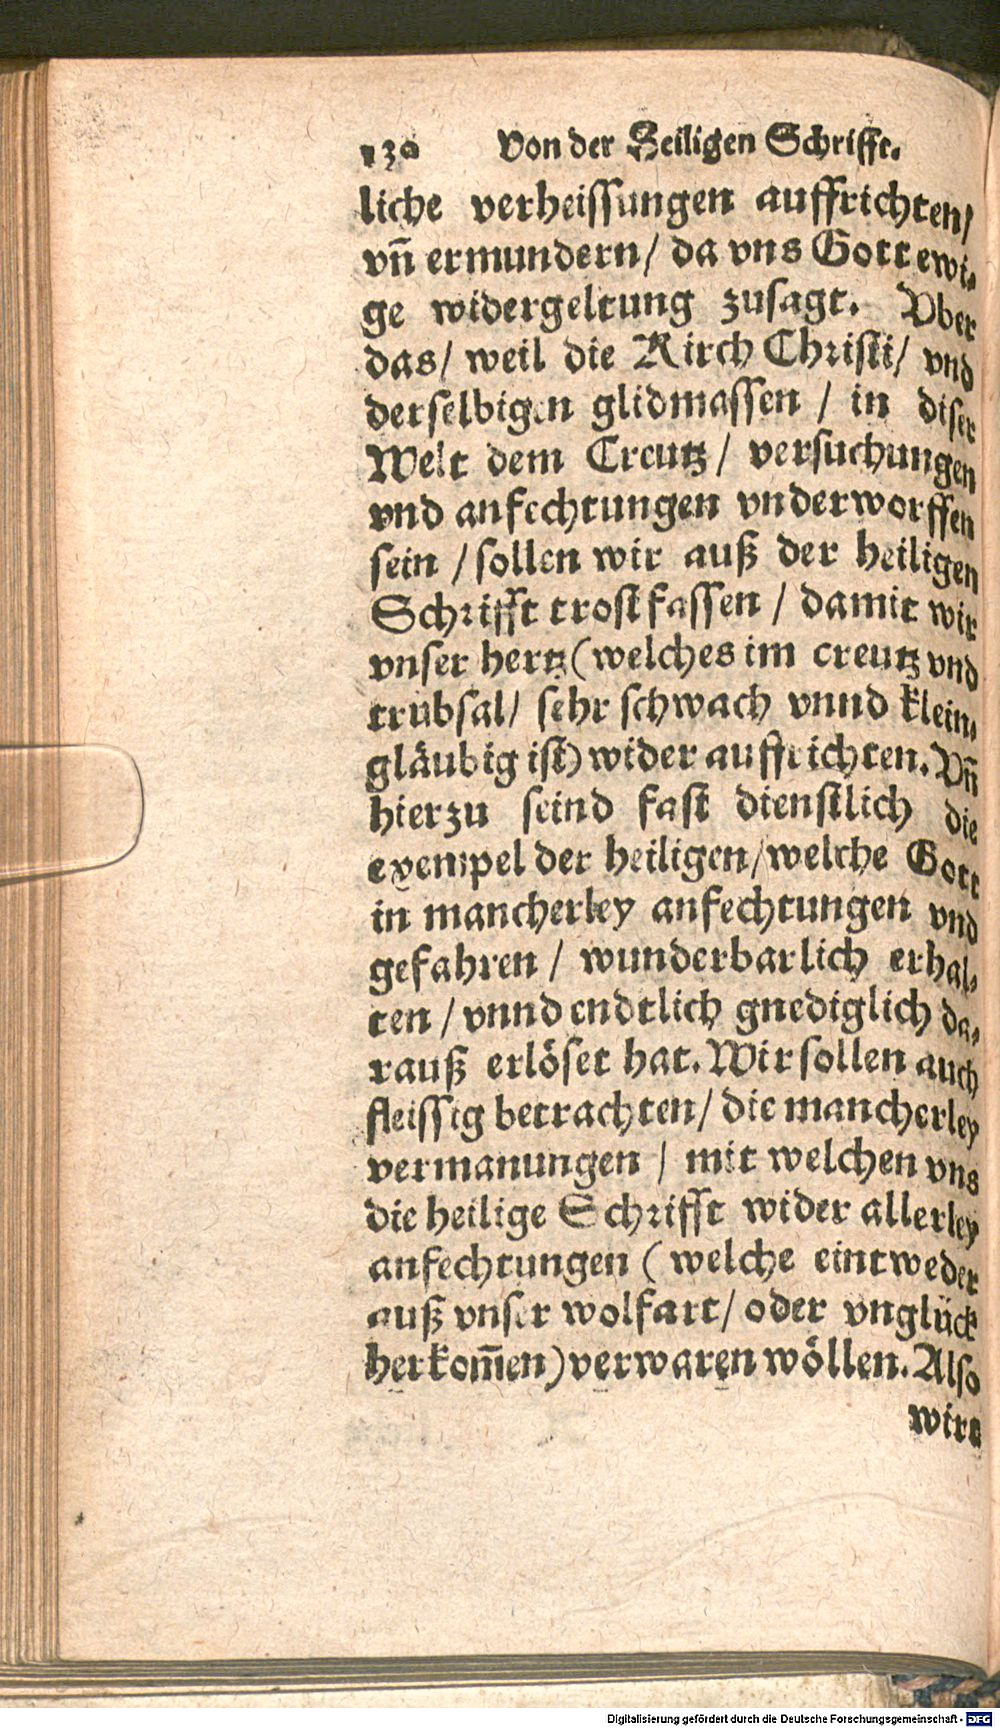 130 Von der Heiligen Schrifft.
liche verheissungen auffrichten/
vn̄ ermundern/ da vns Gott ewi-
ge widergeltung zusagt. Vber
das/ weil die Kirch Christi/ vnd
derselbigen glidmassen / in diser
Welt dem Creutz / versuchungen
vnd anfechtungen vnderworffen
sein / sollen wir auß der heiligen
Schrifft trost fassen / damit wir
vnser hertz (welches im creutz vnd
trübsal/ sehr schwach vnnd klein-
gläubig ist) wider auffrichten. Vn̄
hierzu seind fast dienstlich die
exempel der heiligen/ welche Gott
in mancherley anfechtungen vnd
gefahren / wunderbarlich erhal-
ten / vnnd endtlich gnediglich da-
rauß erlöset hat. Wir sollen auch
fleissig betrachten/ die mancherley
vermanungen / mit welchen vns
die heilige Schrifft wider allerley
anfechtungen ( welche eintweder
auß vnser wolfart/ oder vnglück
herkom̄en) verwaren wöllen. Also
wirt
Digitalisierung gefördert durch die Deutsche Forschungsgemeinschaft - DFG